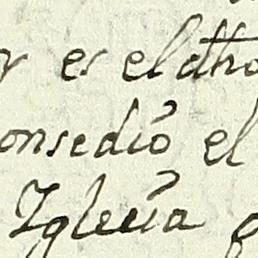 y es el dho
onsedió el
Iglecia